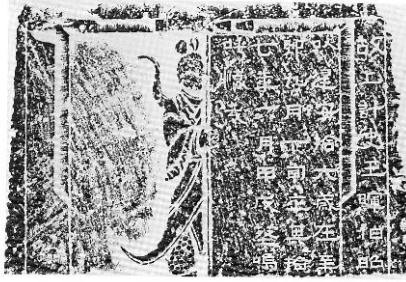 故上計史王暉伯昭
以建安拾六歲在辛
卯九月下旬卒其拾
七年六月甲戌葬嗚
呼哀哉